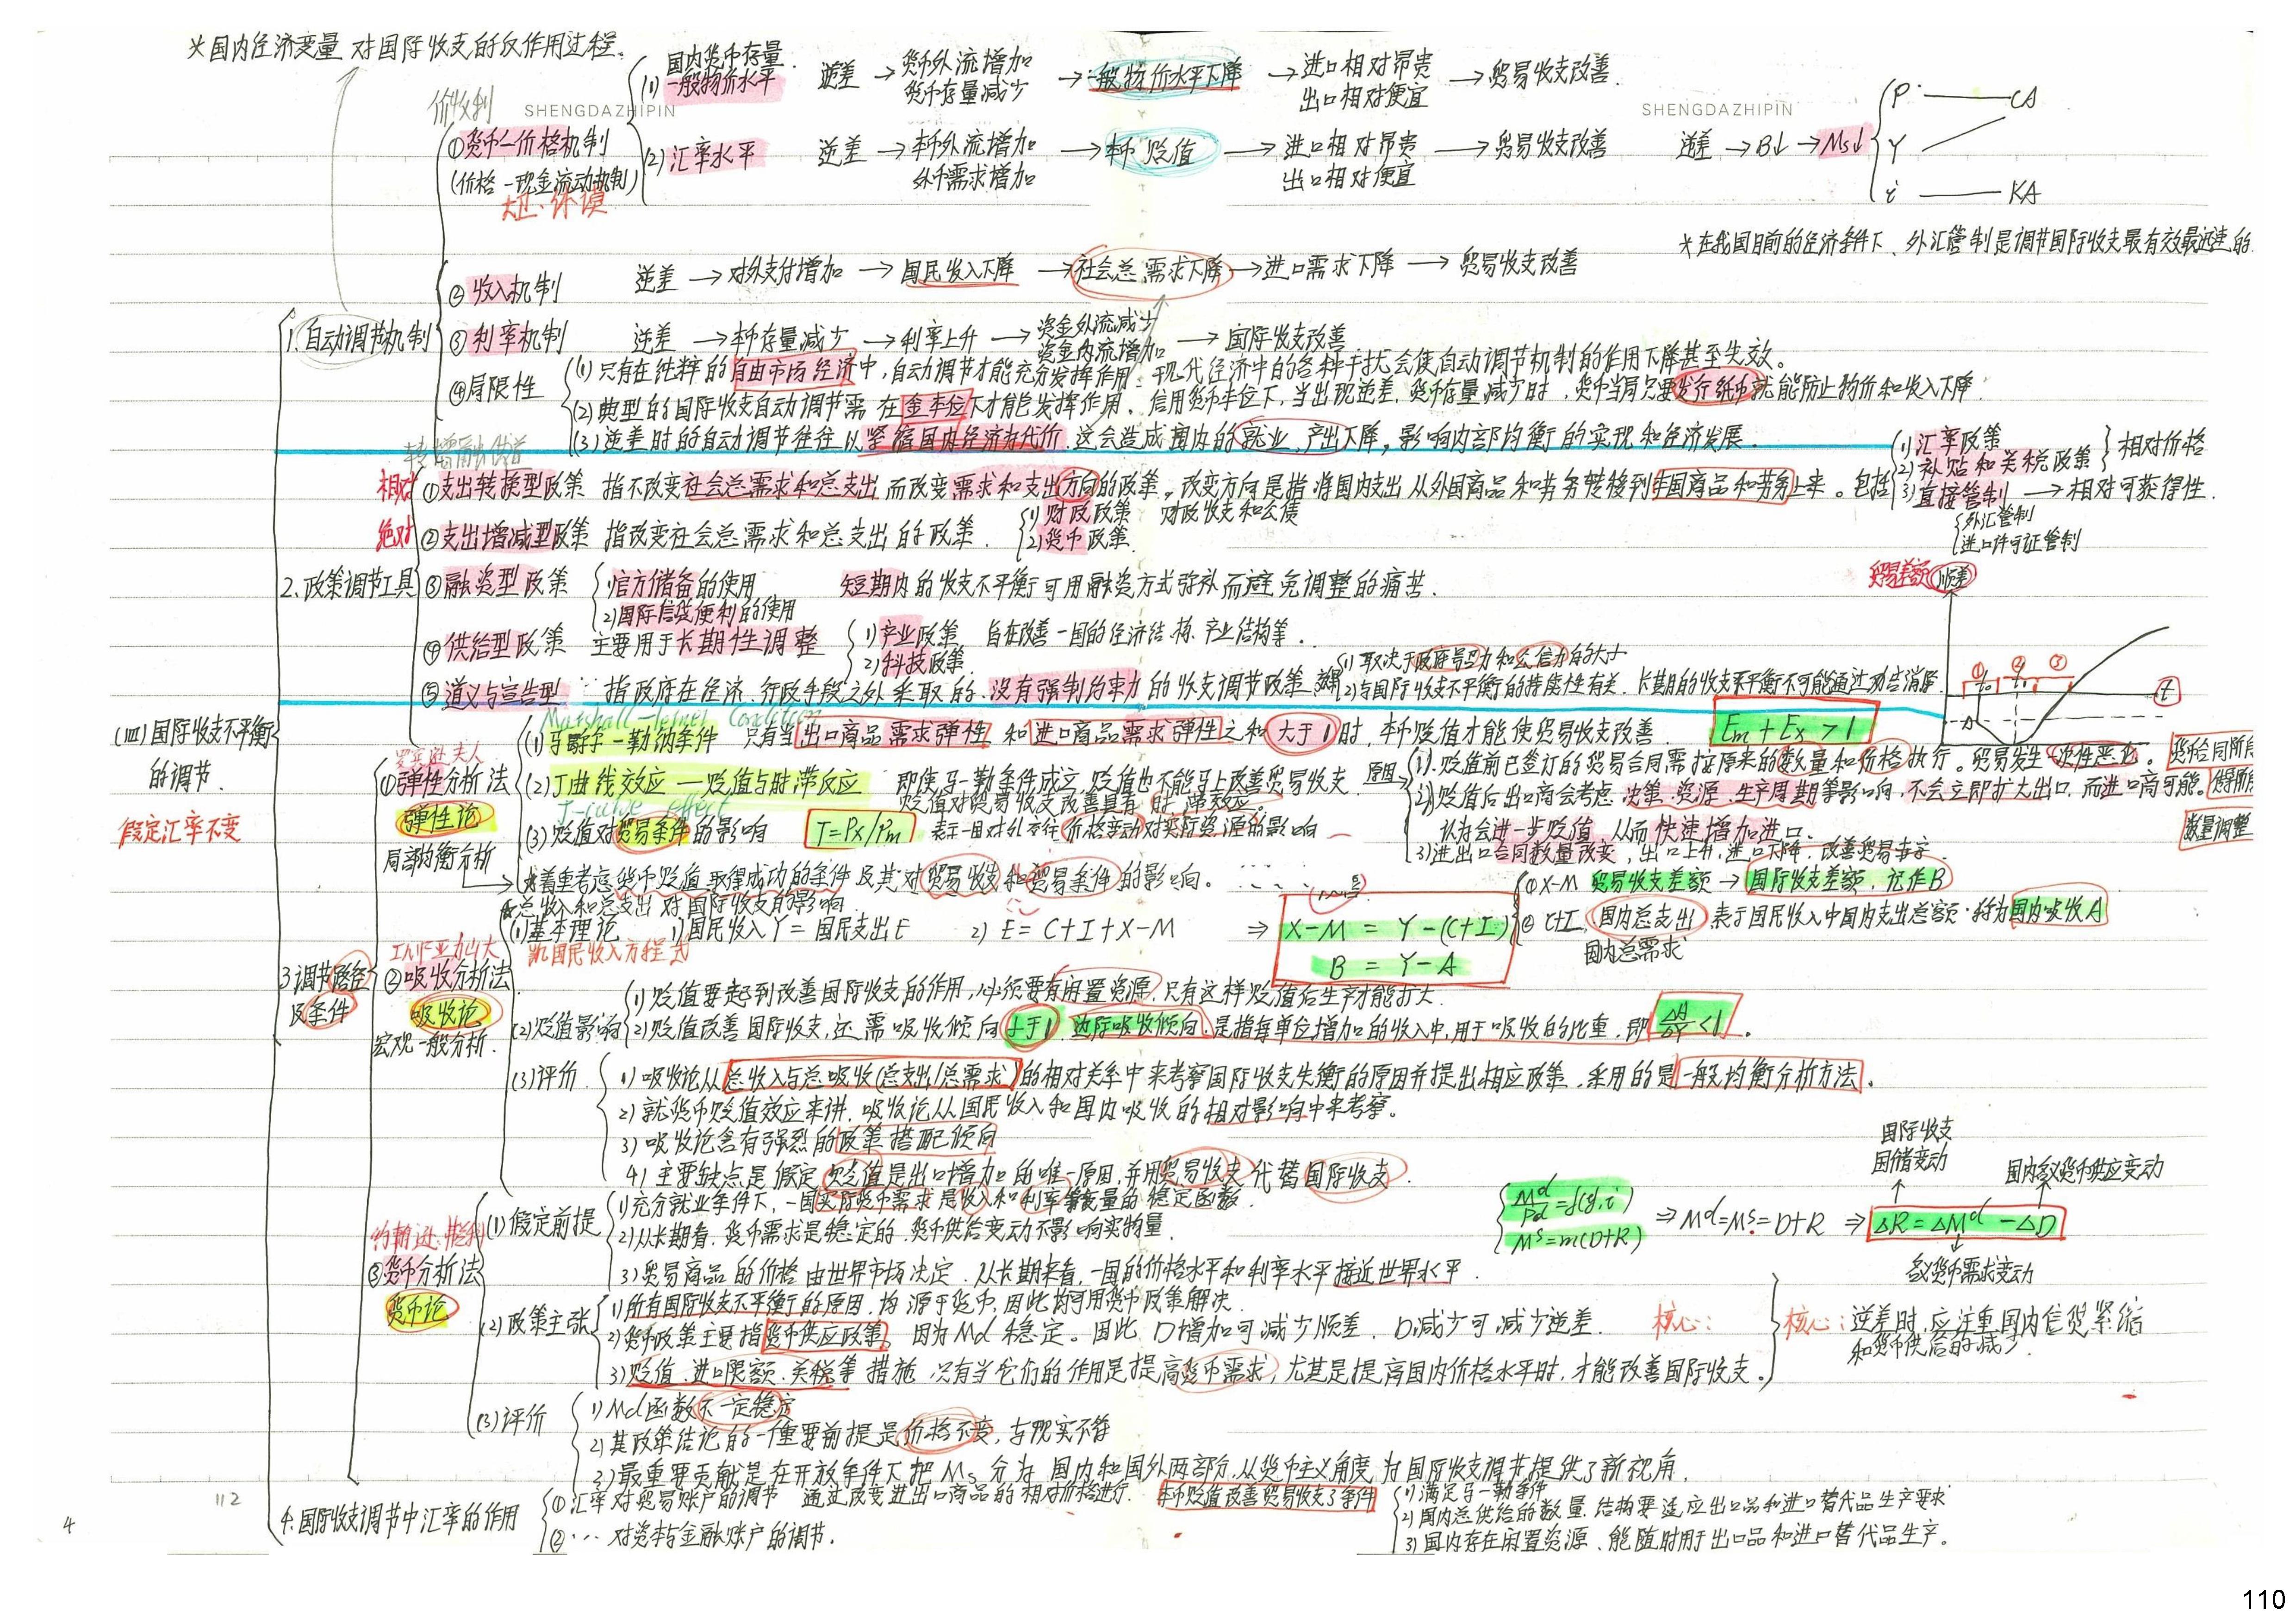 *国内经济变量 对国际收支的反作用过程。
SHENGDAZHIPIN
SHENGDAZHIPIN
(四)国际收支不平衡的调节.
假定汇率不变
1.自动调节机制
价收利
①货币—价格机制
(价格—现金流动机制)
大卫·休谟
(1) 国内货币存量. 一般物价水平 逆差 → 货币外流增加 货币存量减少 → 一般物价水平下降 → 进口相对昂贵 出口相对便宜 → 贸易收支改善.
(2) 汇率水平 逆差 → 本币外流增加 外币需求增加 → 本币贬值 → 进口相对昂贵 出口相对便宜 → 贸易收支改善
逆差 → B↓ → Ms↓
P — CA
Y
i — KA
*在我国目前的经济条件下、外汇管制是调节国际收支最有效最迅速的
②收入机制 逆差 → 对外支付增加 → 国民收入下降 → 社会总需求下降 → 进口需求下降 → 贸易收支改善
③利率机制 逆差 → 本币存量减少 → 利率上升 → 资金外流减少 资金内流增加 → 国际收支改善
④局限性
(1)只有在纯粹的自由市场经济中,自动调节才能充分发挥作用. 现代经济中的各种干扰会使自动调节机制的作用下降甚至失效。
(2)典型的国际收支自动调节需在金本位下才能发挥作用、信用货币本位下,当出现逆差,货币存量减少时,货币当局只要发行纸币就能防止物价和收入下降.
(3)逆差时的自动调节往往以紧缩国内经济为代价.这会造成国内的就业、产出下降,影响内部均衡的实现和经济发展.
2、政策调节工具
转增融供道
相对 ①支出转换型政策 指不改变社会总需求和总支出而改变需求和支出方向的政策,改变方向是指将国内支出从外国商品和劳务转移到本国商品和劳务上来。包括
1)汇率政策
2)补贴和关税政策 } 相对价格
3)直接管制 → 相对可获得性.
外汇管制
进口许可证管制
绝对 ②支出增减型政策 指改变社会总需求和总支出的政策.
1)财政政策 财政收支和公债
2)货币政策.
③融资型政策
1)官方储备的使用
2)国际信贷便利的使用
短期内的收支不平衡可用融资方式弥补而避免调整的痛苦.
④供给型政策 主要用于长期性调整
1)产业政策 旨在改善一国的经济结构、产业结构等.
2)科技政策.
⑤道义与宣告型 指政府在经济、行政手段之外采取的、没有强制约束力的收支调节政策.
1)取决于政府号召力和公信力的大小
2)与国际收支不平衡的持续性有关. 长期的收支不平衡不可能通过劝告消除.
贸易差额(顺差)
① ② ③
t
3调节路径及条件
罗宾逊夫人
①弹性分析法
弹性论
局部均衡分析
Marshall-Lerner Condition
(1)马歇尔—勒纳条件 只有当出口商品需求弹性和进口商品需求弹性之和大于1时,本币贬值才能使贸易收支改善. Em + Ex > 1
(2)J曲线效应—贬值与时滞反应 即使马—勒条件成立,贬值也不能马上改善贸易收支.
J-curve effect
贬值对贸易收支改善具有时滞效应。
原因
1).贬值前已签订的贸易合同需按原来的数量和价格执行。贸易发生一次性恶化。
货币合同阶
2)贬值后出口商会考虑决策、资源、生产周期等影响,不会立即扩大出口.而进口商可能认为会进一步贬值,从而快速增加进口.
传导阶
3)进出口合同数量改变,出口上升,进口下降.改善贸易赤字.
数量调整
(3)贬值对贸易条件的影响 T=Px/Pm 表示一国对外交往价格变动对实际资源的影响
*着重考虑货币贬值取得成功的条件及其对贸易收支和贸易条件的影响。
②吸收分析法
吸收论
宏观一般分析.
总收入和总支出对国际收支的影响.
(1)基本理论 1)国民收入Y=国民支出E 2) E = C+I+X-M ⇒ X-M = Y-(C+I)
凯国民收入方程式
B = Y-A
① X-M 贸易收支差额 → 国际收支差额,记作B
② C+I 国内总支出 表示国民收入中国内支出总额.称为国内吸收A
国内总需求
(2)贬值影响
1)贬值要起到改善国际收支的作用,必须要有闲置资源.只有这样贬值后生产才能扩大.
2)贬值改善国际收支,还需吸收倾向小于1 边际吸收倾向.是指每单位增加的收入中,用于吸收的比重.即 ΔA/ΔY<1.
(3)评价
1)吸收论从总收入与总吸收(总支出/总需求)的相对关系中来考察国际收支失衡的原因并提出相应政策.采用的是一般均衡分析方法.
2)就货币贬值效应来讲,吸收论从国民收入和国内吸收的相对影响中来考察。
3)吸收论含有强烈的政策搭配倾向
4)主要缺点是假定贬值是出口增加的唯一原因,并用贸易收支代替国际收支.
约翰逊·
③货币分析法
货币论
(1)假定前提
1)充分就业条件下,一国实际货币需求是收入和利率等变量的稳定函数.
2)从长期看.货币需求是稳定的.货币供给变动不影响实物量.
3)贸易商品的价格由世界市场决定.从长期来看,一国的价格水平和利率水平接近世界水平.
Md/Pd=f(y,i)
Ms=m(D+R)
⇒ Md=Ms=D+R ⇒ ΔR=ΔMd-ΔD
国际收支国储变动
国内名义货币供应变动
名义货币需求变动
(2)政策主张
1)所有国际收支不平衡的原因,均源于货币,因此均可用货币政策解决.
2)货币政策主要指货币供应政策,因为Md稳定。因此D增加可减少顺差.D减少可减少逆差.
3)贬值、进口限额、关税等措施,只有当它们的作用是提高货币需求,尤其是提高国内价格水平时,才能改善国际收支.
核心:
核心:逆差时,应注重国内信贷紧缩和货币供给的减少.
(3)评价
1)Md函数不一定稳定
2)其政策结论的一个重要前提是价格不变,与现实不符
3)最重要贡献是在开放条件下把Ms分为国内和国外两部分,从货币主义角度为国际收支调节提供了新视角.
4.国际收支调节中汇率的作用
①汇率对贸易账户的调节 通过改变进出口商品的相对价格进行. 本币贬值改善贸易收支3条件
1)满足马—勒条件
2)国内总供给的数量.结构要适应出口品和进口替代品生产要求
3)国内存在闲置资源、能随时用于出口品和进口替代品生产。
②… 对资本与金融账户的调节.
112
4
110